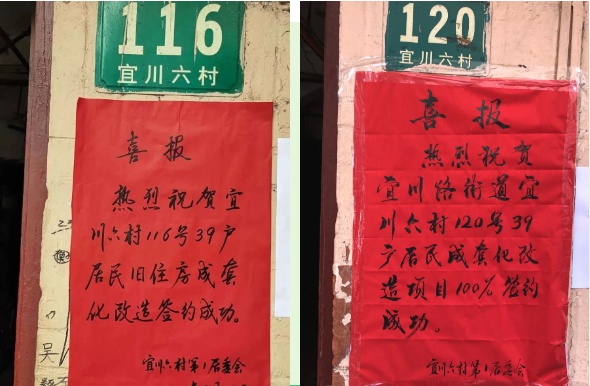 116
宜川六村
喜报
热烈祝贺宜
川六村116号39户
居民旧住房成套
化改造签约成功。
宜川六村第1居委会
吴
120
宜川六村
喜报
热烈祝贺
宜川路街道宜
川六村120号39
户居民成套化改
造项目100%签约
成功。
宜川六村第1居委会